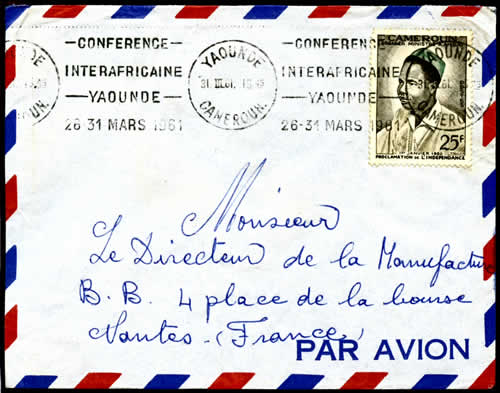 CONFERENCE
INTERAFRICAINE
YAOUNDE
26-31 MARS 1961
YAOUNDE
31 III.61. 15-45
CAMEROUN.
CONFERENCE
INTERAFRICAINE
YAOUNDE
26-31 MARS 1961
YAOUNDE
CAMEROUN.
CAMEROUN
PREMIER MINISTRE
25F
1er JANVIER 1960
PROCLAMATION DE L'INDEPENDANCE
Monsieur
Le Directeur de la Manufactu
B. B. 4 place de la bourse
Nantes (France)
PAR AVION